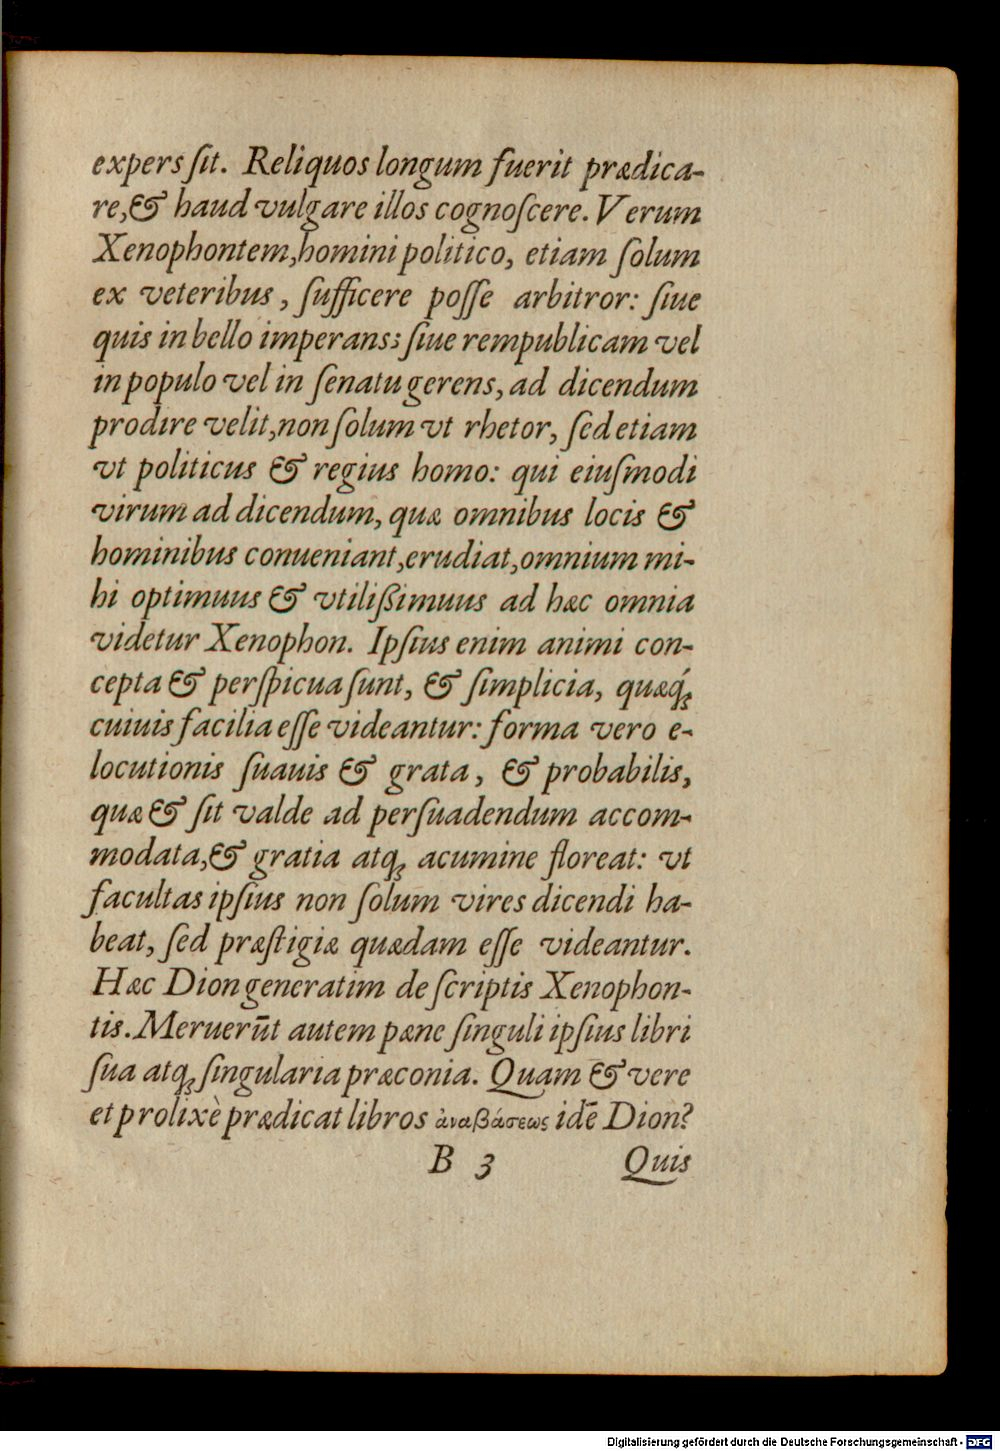 expers ſit. Reliquos longum fuerit prædica-
re,& haud vulgare illos cognoſcere. Verum
Xenophontem,homini politico, etiam ſolum
ex veteribus, ſufficere poſſe arbitror: ſiue
quis in bello imperans: ſiue rempublicam vel
in populo vel in ſenatu gerens, ad dicendum
prodire velit,non ſolum vt rhetor, ſed etiam
vt politicus & regius homo: qui eiuſmodi
virum ad dicendum, quæ omnibus locis &
hominibus conueniant,erudiat,omnium mi-
hi optimuus & vtilißimuus ad hæc omnia
videtur Xenophon. Ipſius enim animi con-
cepta & perſpicua ſunt, & ſimplicia, quæq́;
cuiuis facilia eſſe videantur: forma vero e-
locutionis ſuauis & grata, & probabilis,
quæ & ſit valde ad perſuadendum accom-
modata,& gratia atq; acumine floreat: vt
facultas ipſius non ſolum vires dicendi ha-
beat, ſed præſtigiæ quædam eſſe videantur.
Hæc Dion generatim de ſcriptis Xenophon-
tis. Meruerūt autem pæne ſinguli ipſius libri
ſua atq; ſingularia præconia. Quam & vere
et prolixè prædicat libros ἀναβάσεως idē Dion?
B 3 Quis
Digitalisierung gefördert durch die Deutsche Forschungsgemeinschaft - DFG